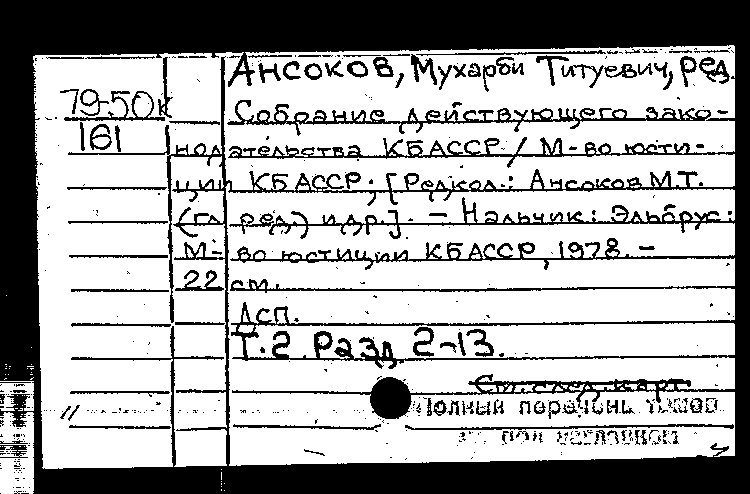 Ансоков, Мухарби Титуевич, ред.
79-50к
161
Собрание действующего зако-
нодательства КБАССР / М-во юсти-
ции КБАССР; [Редкол.: Ансоков М.Т.
(гл. ред.) и др.]. – Нальчик: Эльбрус:
М-во юстиции КБАССР, 1978. –
22 см.
Дсп.
Т.2 Разд. 2-13.
См. след. карт.
Полный перечень томов
под заглавием